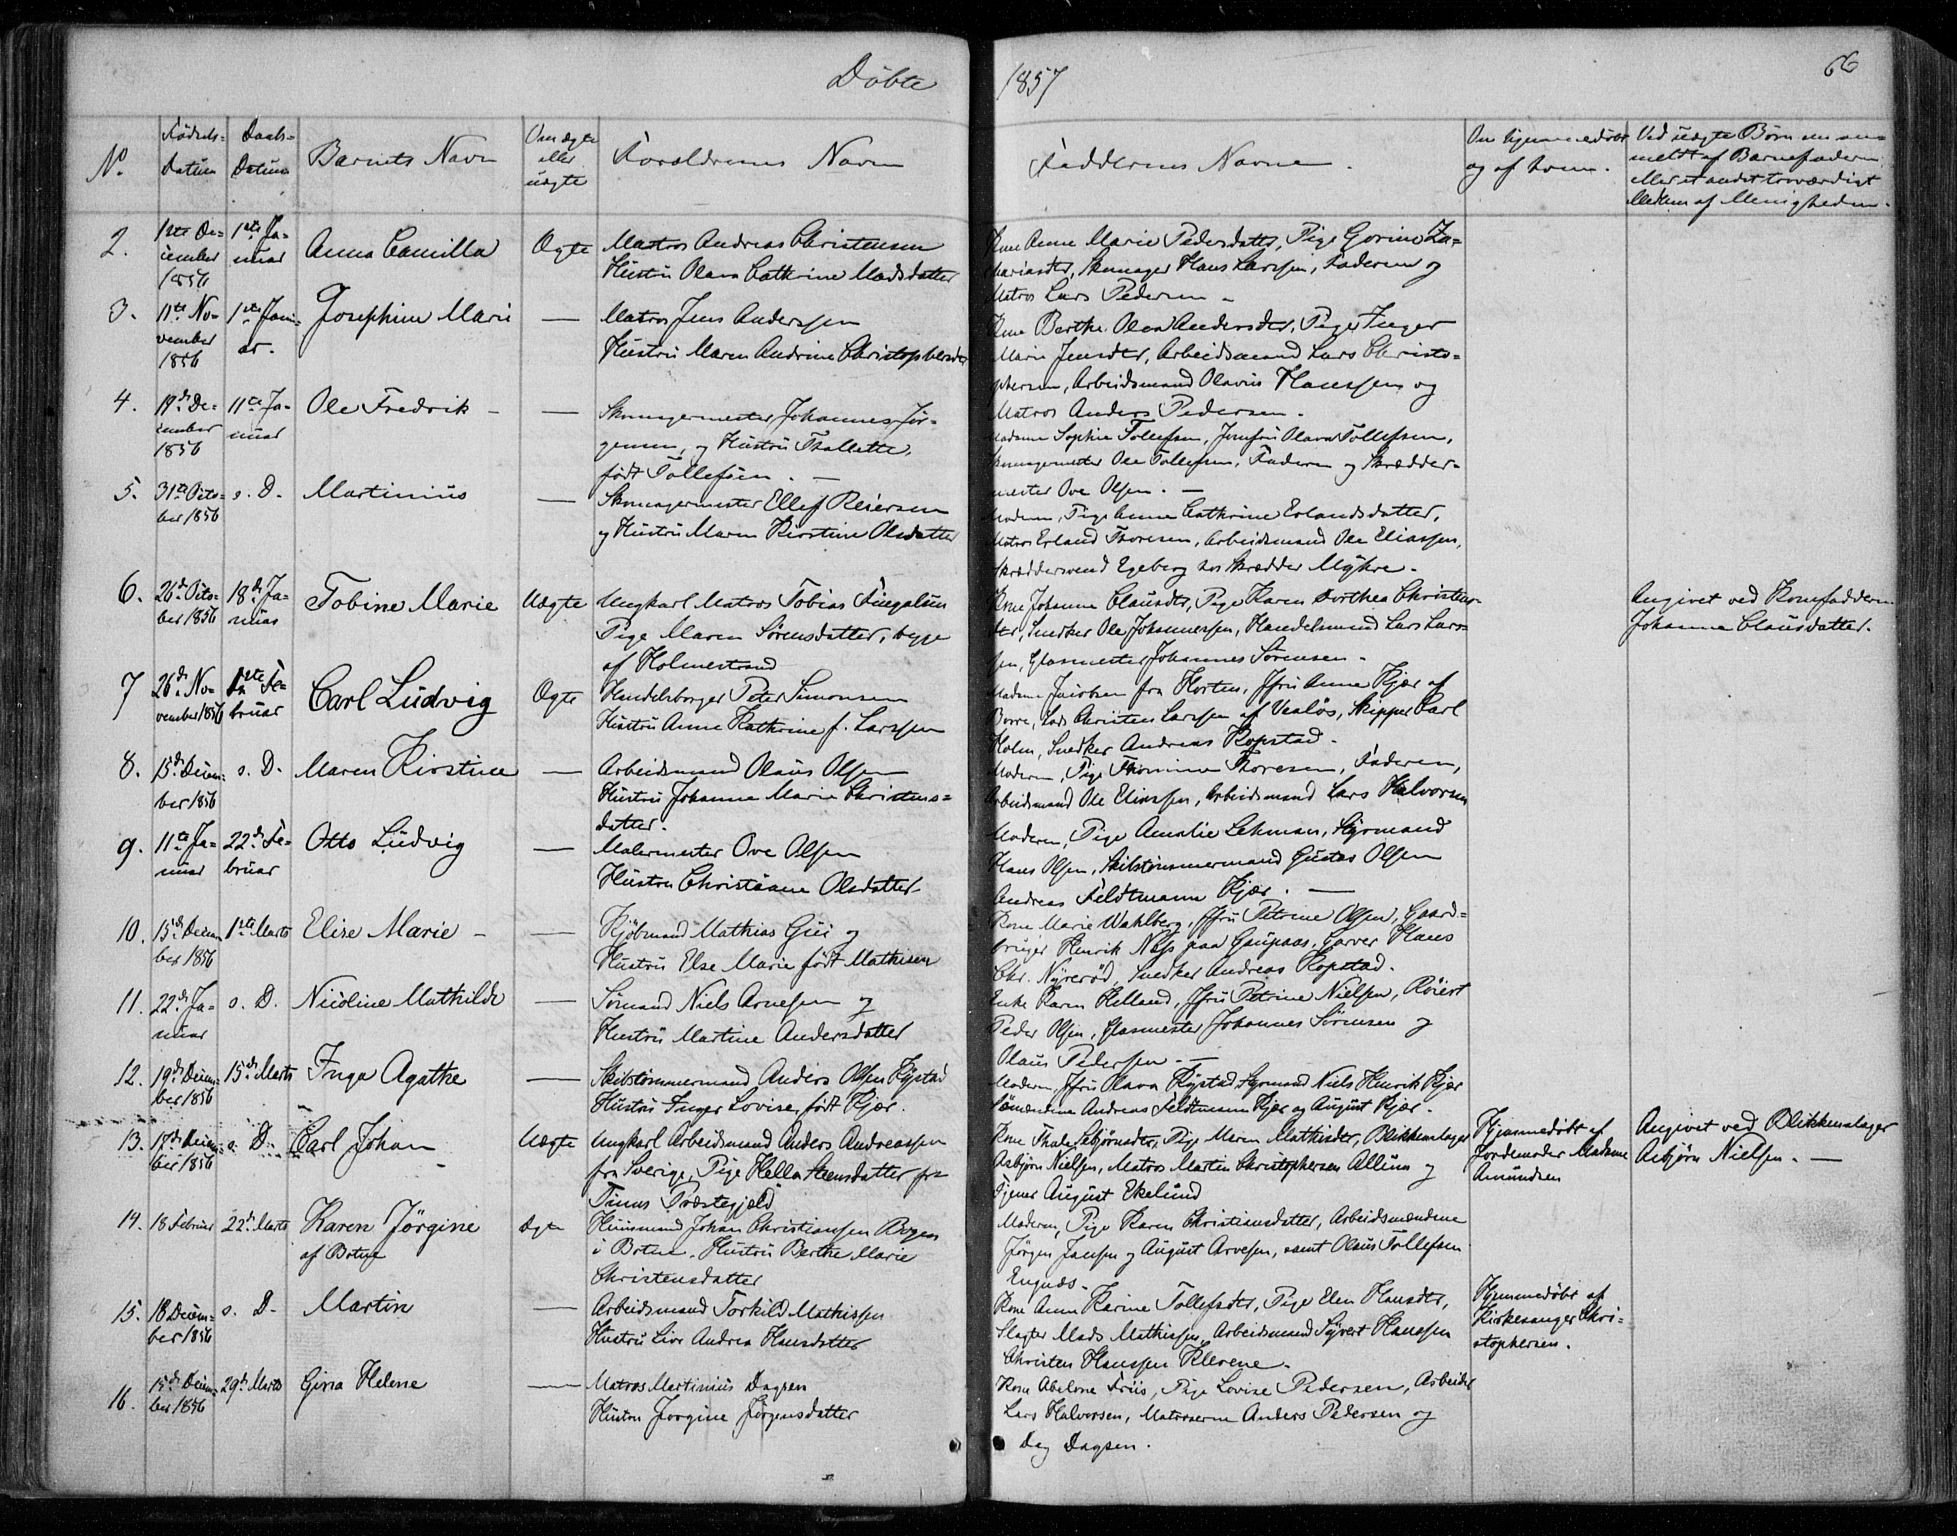 Döbte 1857 66
No. Fødsels-Datum Daabs-Datum Barnets Navn Om ægte eller uægte Forældrenes Navne Faddernes Navne. Om hjemmedøbt og af hvem. Ved uægte Børn om anmeldt af Barnefaderen eller et andet troværdigt Medlem af Menigheden.
2. 1ste December 1856 1ste Januar Anna Camilla Ægte
Matros Andreas Christensen
Hustru Olava Cathrine Madsdatter
Kone Anne Marie Pedersdatter, Pige Gorine Za-
chariasdtr, Skomager Hans Larssen, Faderen og
Matros Lars Pedersen -
3. 11te November 1856 1ste Januar. Josephine Marie —
Matros Jens Anderssen
Hustru Maren Andrine Christophersdtr
Kone Berthe Olea Andersdtr, Pige Inger
Marie Jensdtr, Arbeidsmand Lars Christo-
phersen, Arbeidsmand Olavus Hanssen og
Matros Anders Pedersen.
4. 19de December 1856 11te Januar Ole Fredrik - —
Skomagermester Johannes Jør-
gensen, og Hustru Thallette,
født Tollefsen. —
Madame Sophie Tollefsen, Jomfru Olava Tollefsen,
Skomagermester Ole Tollefsen, Faderen og Skrædder-
mester Ove Olsen. —
5. 31te October 1856 s. D. Martinius —
Skomagermester Ellef Reiersen
og Hustru Maren Kirstine Olsdatter
Moderen, Pige Anne Cathrine Erlandsdatter,
Matros Erland Thoresen, Arbeidsmand Ole Eliassen,
Skræddersvend Egeberg hos Skrædder Myhre.
6. 26de October 1856 18de Januar Tobine Marie Uægte
Ungkarl Matros Tobias Fingalsen
Pige Maren Sørensdatter, begge
af Holmestrand
Kone Johanne Clausdtr, Pige Karen Dorthea Christens-
dtr, Snedker Ole Johannessen, Handelsmand Lars Lars-
sen, Glasmester Johannes Sørensen -
Angivet ved Konefadderen
Johanne Clausdatter.
7 26de November 1856 1ste Februar Carl Ludvig Ægte
Handelsborger Peter Simonsen
Hustru Anne Kathrine f. Larssen
Madame Jacobsen fra Horten, Jfru Anne Kjær af
Borre, Lods Christen Larssen af Vealøs, Skipper Carl
Holm, Snedker Andreas Kopstad -
8. 15de December 1856 s. D. Maren Kirstine —
Arbeidsmand Olaus Olsen
Hustru Johanne Marie Christens-
datter.
Moderen, Pige Thomine Thoresen, Faderen,
Arbeidsmand Ole Eliassen, Arbeidsmand Lars Halvorsen
9. 11te Januar 22de Februar Otto Ludvig —
Malermester Ove Olsen
Hustru Christiane Olsdatter
Moderen, Pige Amalie Lehman, Styrmand
Hans Olsen, Skibstømmermand Gustav Olsen
Andreas Feldtmann Kjær. —
10. 15de December 1856 1ste Marts Elise Marie - —
Kjøbmand Mathias Gui og
Hustru Else Marie født Mathisen
Kone Marie Wahlberg, Jfru Petrine Olsen, Gaard-
bruger Henrik Næss paa Gaupaas, Garver Hans
Chr. Nyrerød, Snedker Andreas Kopstad.
11. 22de Januar s. D. Nicoline Mathilde —
Sømand Niels Arnesen og
Hustru Martine Andersdatter
Enke Karen Helland, Jfru Petrine Nielsen, Røiert
Peder Olsen, Glasmester Johannes Sørensen og
Olaus Pedersen. —
12. 19de December 1856 15de Marts Inga Agathe —
Skibstømmermand Anders Olsen Rystad
Hustru Inger Lovise, født Kjær.
Moderen, Jfru Olava Rystad, Styrmand Niels Henrik Kjær
Sømændene Andreas Feldtmann Kjær og August Kjær.
13. 17de December 1856 s. D. Carl Johan Uægte
Ungkarl Arbeidsmand Anders Andreassen
fra Sverige, Pige Hella Steensdatter fra
Præstegjeld
Kone Thale Sebjørnsdtr, Pige Maren Mathisdtr, Blikkenslager
Asbjørn Nielsen, Matros Martin Christophersen Allum og
Tjener August Ekelund
Hjemmedøbt af
Jordemoder Madame
Amundsen
Angivet ved Blikkenslager
Asbjørn Nielsen. —
14. 18 Februar 22de Marts Karen Jørgine
af Botne Ægte
Huusmand Johan Christianssen Bogen
i Botne. Hustru Berthe Marie
Christensdatter
Moderen, Pige Karen Christiansdatter, Arbeidsmændene
Jørgen Jansen og August Arvesen, samt Olaus Tollefsen
Engnæs -
15. 18 December 1856 s. D. Martin —
Arbeidsmand Torkild Mathissen
Hustru Live Andrea Hansdatter
Kone Anne Karine Tollefsdtr, Pige Elen Hansdtr,
Slagter Mads Mathissen, Arbeidsmand Syvert Hanssen
Christen Hanssen Klevene.
Hjemmedøbt af
Kirkesanger Chri-
stophersen.
16. 15de December 1856 29de Marts Gina Helene —
Matros Martinius Dagsen
Hustru Jorgine Jørgensdatter
Kone Abelone Friis, Pige Lovise Pedersen, Arbeider
Lars Halvorsen, Matroserne Anders Pedersen og
Dag Dagsen.